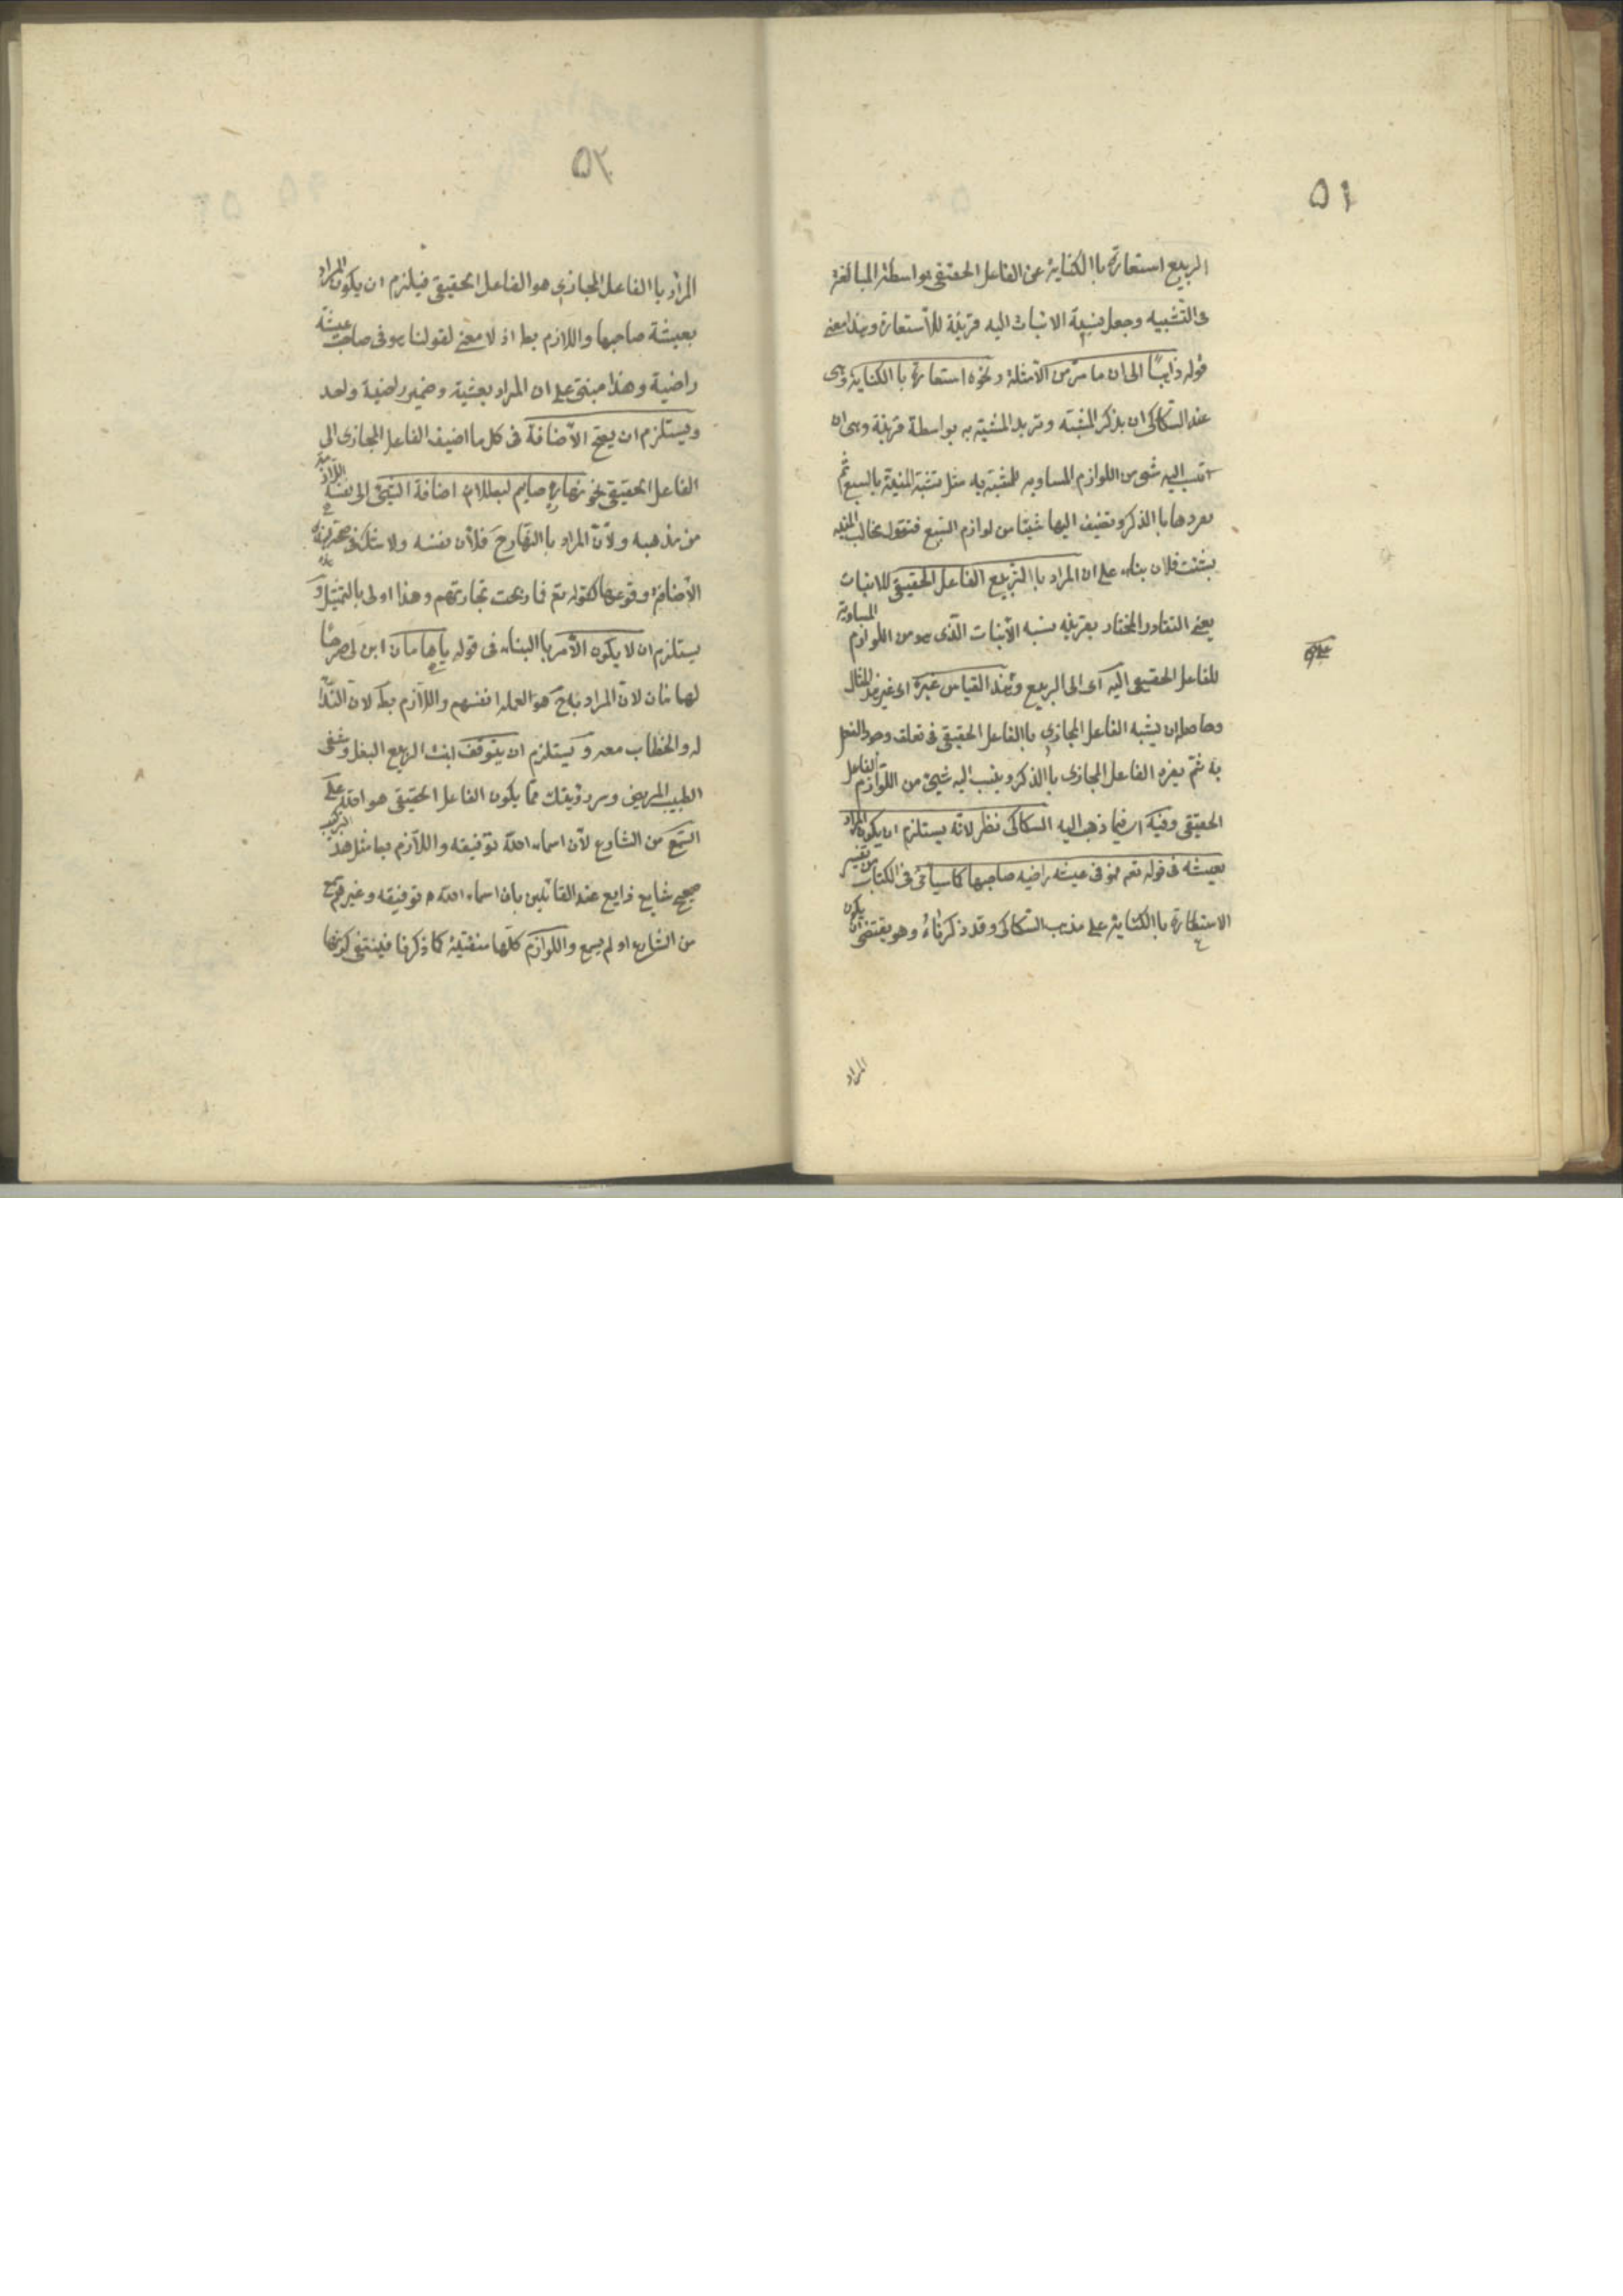 ٥١
الربيع استعارة باالكناية عن الفاعل الحقيقى بواسطة المبالغة
فى التشبيه وجعل نسبة الانبات اليه قرينة للأستعارة وهذا معنى
قوله ذاهبًا الى ان ما مر من الأمثلة ونحوه استعارة باالكناية وهى
عند السكاكى ان يذكر المشبه وتريد المشبه به بواسطة قرينة وهى ان
تنسب اليه شىء من اللوازم المساويه للمشبه به مثل تشبه المنية بالسبع ثم
تفردها باالذكر وتضيف اليها شيئا من لوازم السبع فتقول مخالب المنيه
نشبت فلان بناء على ان المراد باالربيع الفاعل الحقيقى للانبات
يعنى القادر المختار بقرينه نسبه الأنبات الذى هو من اللوازم المساوية
للفاعل الحقيقى اليه اى الى الربيع وهذا القياس غيره اى غير هذا المثال
وحاصله ان يشبه الفاعل المجازى باالفاعل الحقيقى فى تعلق وجود الفعل
به ثم يفرد الفاعل المجازى باالذكر وينسب اليه شيئ من اللوازم الفاعل
الحقيقى وفيه اى فيما ذهب اليه السكاكى نظر لانه يستلزم ان يكون المراد
بعيشه فى قوله تعم فهو فى عيشه راضيه صاحبها كما سيأتى فى الكتاب من تفسير
الاستعارة باالكناية على مذهب السكاكى وقد ذكرناه وهو يقتضى ان يكون
المراد
٥٢
المراد باالفاعل المجازى هو الفاعل الحقيقى فيلزم ان يكون المراد
بعيشة صاحبها واللازم بط اذ لا معنى لقولنا هو فى صاحب عيشة
راضية وهذا مبنى على ان المراد بعيشة وضمير راضية واحد
ويستلزم ان يصح الأضافة فى كل ما اضيف الفاعل المجازى الى
الفاعل الحقيقى نحو نهاره صايم لبطلان اضافة الشيئ الى نفسه اللازمة
من مذهبه ولأن المراد باالنهار ح فلأن نفسه ولا شك فى صحة هذه
الأضافة ووقوعها كقوله تعم فما ربحت تجارتهم وهذا اولى بالتمثيل و
يستلزم ان لا يكون الأمر باالبناء فى قوله ياهامان ابن لى صرحًا
لهامان لان المراد به ح هو العمله انفسهم واللازم بط لان النداء
له والخطاب معه ويستلزم ان يتوقف انبت الربيع البقل وشفى
الطبيب المريض وسرتنى رؤيتك مما يكون الفاعل الحقيقى هو الله على
السمع من الشارع لأن اسماء الله توقيفه واللازم بط مثل هذ التركيب
صحيح شايع ذايع عند القائلين بان اسماء الله توقيفه وغيرهم سمع
من الشارع او لم يسمع واللوازم كلها منفتية كما ذكرنا فينتفى كونها